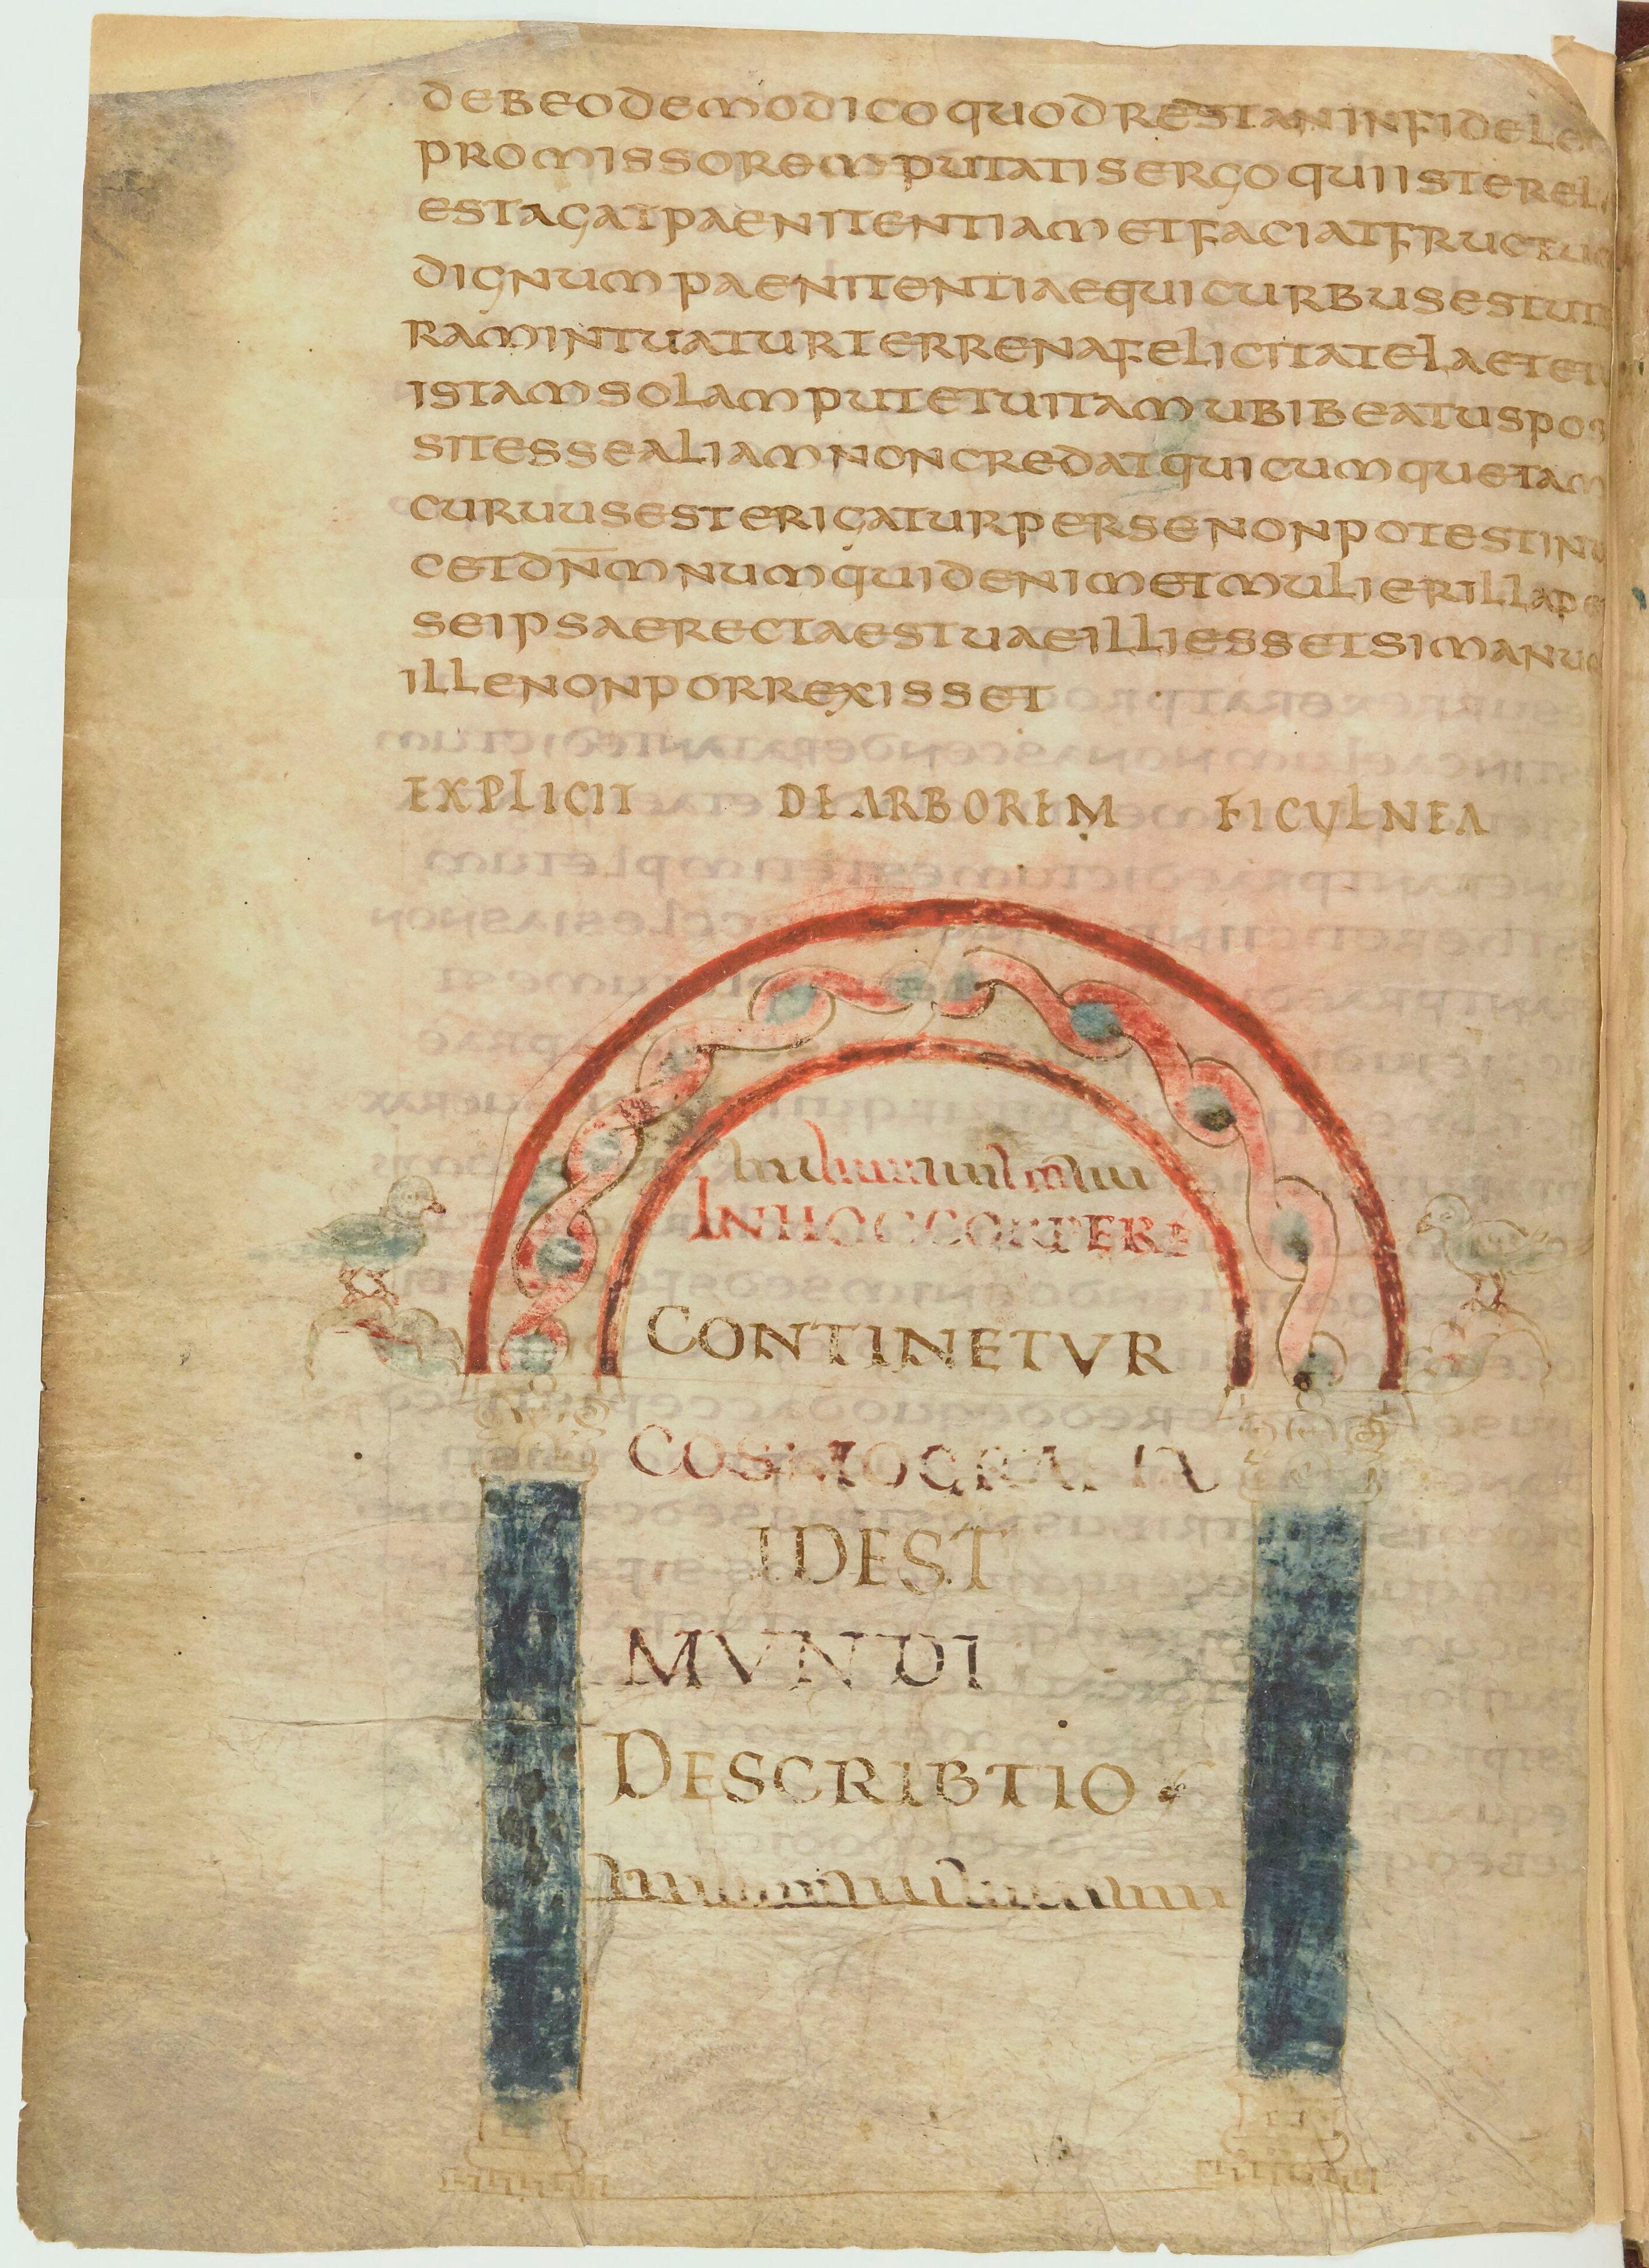 DEBEODEMODICOQUODRESTANINFIDELE
PROMISSOREMPUTATISERGOQUIISTEREL
ESTAGATPAENITENTIAMETFACIATFRUCTUS
DIGNUMPAENITENTIAEQUICURBUSESTUT
RAMINTUATURTERRENAFELICITATELAETE
ISTAMSOLAMPUTETUITAMUBIBEATUSPOS
SITESSEALIAMNONCREDATQUICUMQUETAM
CURUUSESTERIGATURPERSENONPOTESTINU
CETDN̄MNUMQUIDENIMETMULIERILLAPE
SEIPSAERECTAESTUAEILLIESSETSIMANU
ILLENONPORREXISSET
EXPLICIT DEARBOREM FICULNEA
INHOCCORPERE
CONTINETVR
COSMOGRAFIA
IDEST
MVNDI
DESCRIBTIO